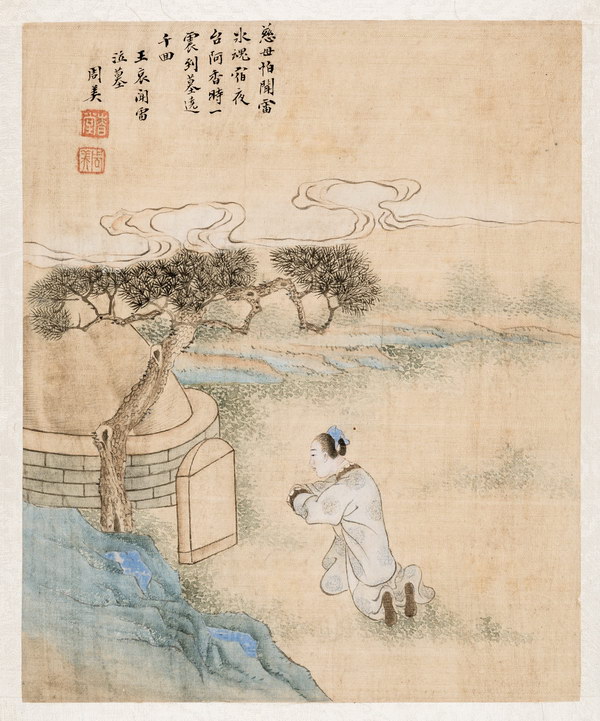 慈母怕聞雷
冰魂宿夜
台阿香時一
震列墓遶
千迴
王裒聞雷
泣墓
周美